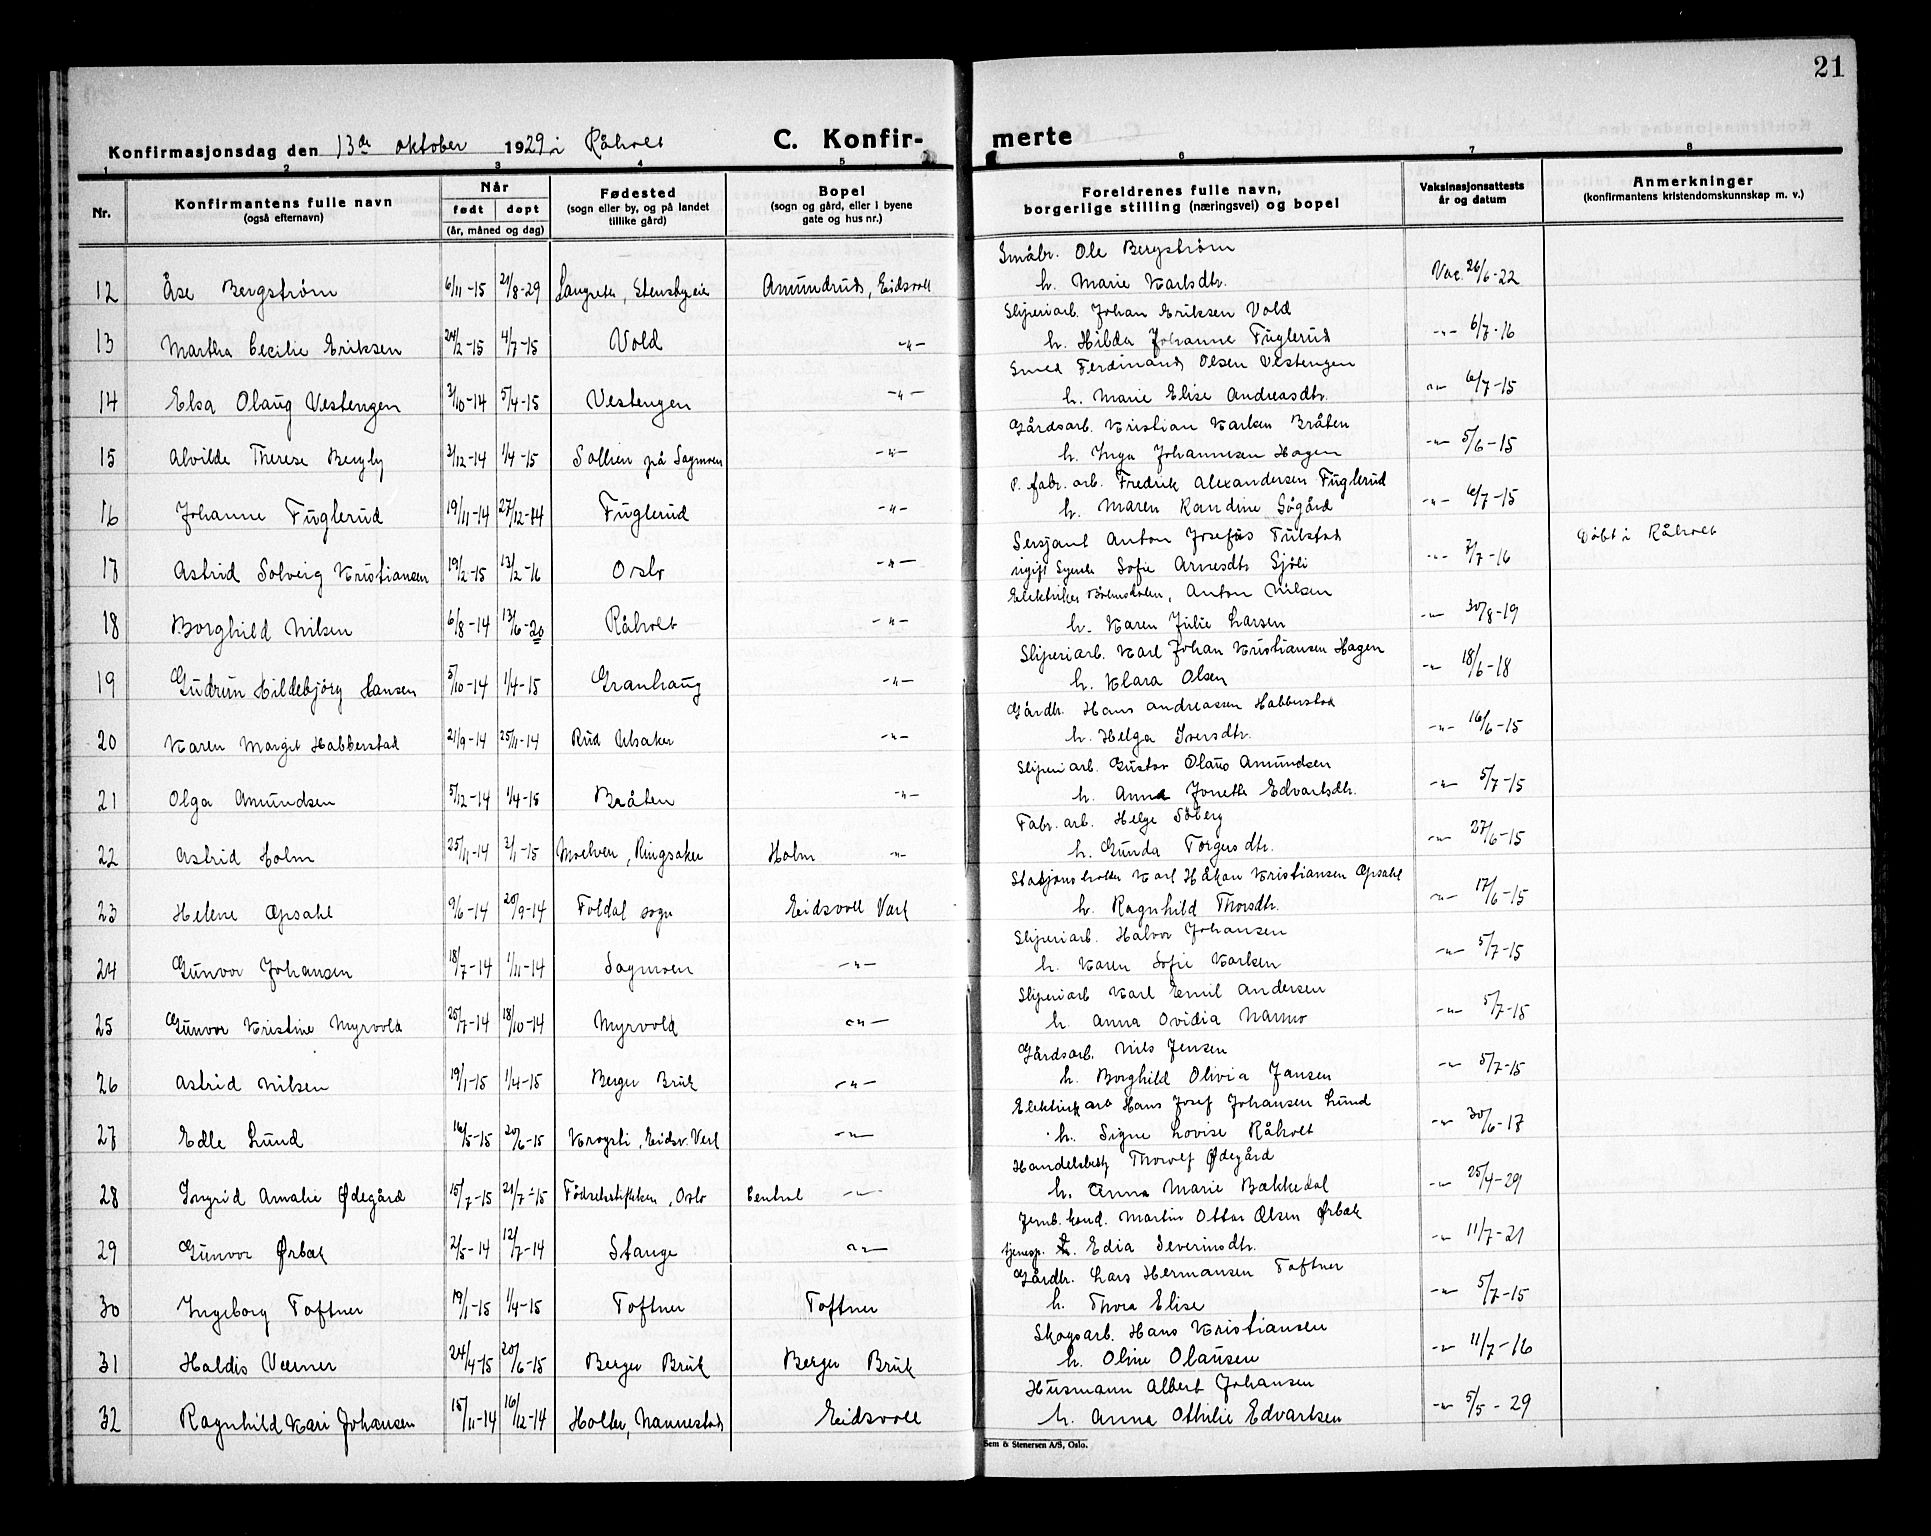 21
Konfirmasjonsdag den 13de oktober 1929 i Råholt C. Konfirmerte
1 2 3 4 5 6 7 8
Nr. Konfirmantens fulle navn (også efternavn) Når født døpt (år, måned og dag) Fødested (sogn eller by, og på landet tillike gård) Bopel (sogn og gård, eller i byene gate og hus nr.) Foreldrenes fulle navn, borgerlige stilling (næringsvei) og bopel Vaksinasjonsattests år og datum Anmerkninger (konfirmantens kristendomskunnskap m. v.)
Småbr. Ole Bergstrøm
12 Åse Bergstrøm 6/11-15 21/8-29 Langreter, Stensbyeie Amundrud, Eidsvoll h. Marie Karlsdtr. Vac. 26/6-22
Sliperiarb. Johan Eriksen Vold
13 Martha Cecilie Eriksen 24/2-15 4/7-15 Vold -"- h. Hilda Johanne Fuglerud -"- 6/7-16
Smed Ferdinand Olsen Vestengen
14 Elsa Olaug Vestengen 3/10-14 5/4-15 Vestengen -"- h. Marie Elise Andreasdtr. -"- 6/7-15
Gårdsarb. Kristian Karlsen Bråten
15 Alvilde Therese Bergby 3/12-14 1/4-15 Sollien på Sagmoen -"- h. Inga Johannesen Hagen -"- 5/6-15
P. fabr. arb. Fredrik Alexandersen Fuglerud
16 Johanne Fuglerud 19/11-14 27/12-14 Fuglerud -"- h. Maren Randine Søgård -"- 6/7-15
Sersjant Anton Josefus Tulstad
17 Astrid Solveig Kristiansen 19/2-15 13/2-16 Oslo -"- ugift Syerske Sofie Arnesdtr Sjøli -"- 7/7-16 Døbt i Råholt
Elektriker Bøhnsdalen, Anton Nilsen
18 Borghild Nilsen 6/8-14 13/6-20 Råholt -"- h. Karen Julie Larsen -"- 30/8-19
Sliperiarb. Karl Johan Kristiansen Hagen
19 Gudrun Hildebjørg Hansen 5/10-14 1/4-15 Granhaug -"- h. Klara Olsen -"- 18/6-18
Gårdbr. Hans Andreassen Habberstad
20 Karen Margit Habberstad 21/9-14 25/11-14 Rud Ulsaker -"- h. Helga Iversdtr. -"- 16/6-15
Sliperiarb. Gustav Olaus Amundsen
21 Olga Amundsen 5/12-14 1/4-15 Bråten -"- h. Anna Jonette Edvartsdtr. -"- 5/7-15
Fabr. arb. Helge Søberg
22 Astrid Holm 25/11-14 3/1-15 Moelven, Ringsaker Holm -"- h. Gunda Torgersdtr. -"- 27/6-15
Stasjonsholder Karl Håkon Kristiansen Opsahl
23 Helene Opsahl 9/6-14 20/9-14 Foldal sogn Eidsvoll Verk h. Ragnhild Thorsdtr. -"- 17/6-15
Sliperiarb. Halvor Johansen
24 Gunvor Johansen 18/7-14 1/11-14 Sagmoen -"- h. Karen Sofie Karlsen -"- 5/7-15
Sliperiarb Karl Emil Andersen
25 Gunvor Kristine Myrvold 25/7-14 18/10-14 Myrvold -"- h. Anna Ovidia Narmo -"- 5/7-15
Gårdsarb. Nils Jensen
26 Astrid Nilsen 19/1-15 1/4-15 Berger Bruk -"- h. Borghild Olivia Jansen -"- 5/7-15
Elektrik arb Hans Josef Johansen Lund
27 Edle Lund 16/5-15 20/6-15 Krogsti, Eidsv. Verk -"- h. Signe Lovise Råholt -"- 30/6-17
Handelsbest. Thorolf Ødegård
28 Ingrid Amalie Ødegård 15/7-15 21/7-15 Fødselsstiftelsen, Oslo Central -"- h. Anna Marie Bakkedal -"- 25/4-29
Jernb. kond. Martin Ottar Olsen Ørbæk
29 Gunvor Ørbæk 2/5-14 12/7-14 Stange -"- tjenesp. Edia Severinsdtr. -"- 11/7-21
Gårdbr. Lars Hermansen Toftner
30 Ingeborg Toftner 19/1-15 1/4-15 Toftner Toftner h. Thora Elise -"- 5/7-15
Skogsarb. Hans Kristiansen
31 Haldis Værner 24/4-15 20/6-15 Berger Bruk Berger Bruk h. Oline Olausen -"- 11/7-16
Husmann Albert Johansen
32 Ragnhild Kari Johansen 15/11-14 16/12-14 Holler, Nannestad Eidsvoll h. Anna Othilie Edvartsen -"- 5/5-29
Sem & Stenersen A/S, Oslo.